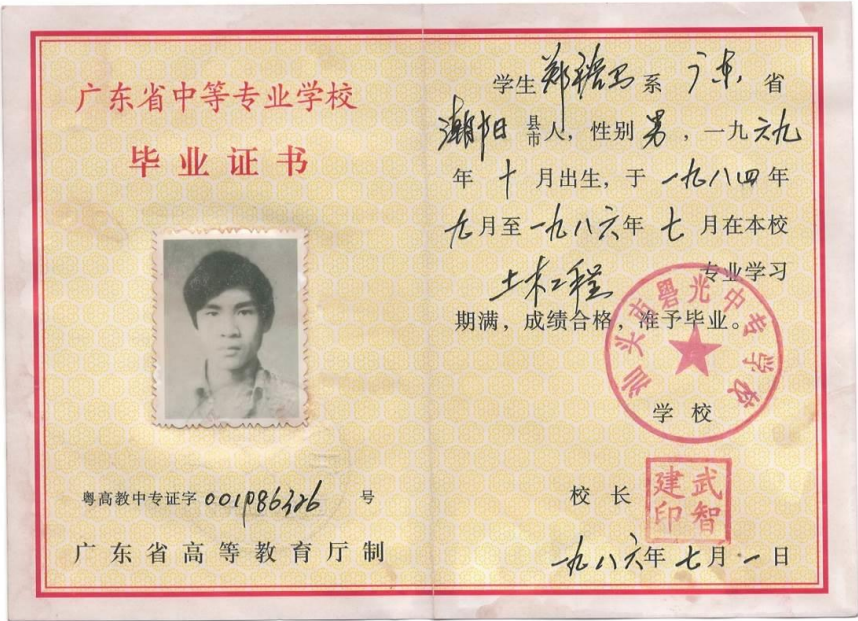 广东省中等专业学校
毕业证书
粤高教中专证字 001986326 号
广东省高等教育厅制
学生 郑 系 广东 省
潮阳 县市 人，性别 男，一九六九
年 十 月出生，于 一九八四 年
九 月至 一九八六 年 七 月在本校
土木工程 专业学习
期满，成绩合格，准予毕业。
汕头市礐光中专学校
学 校
校 长 武智建印
一九八六 年 七 月 一 日